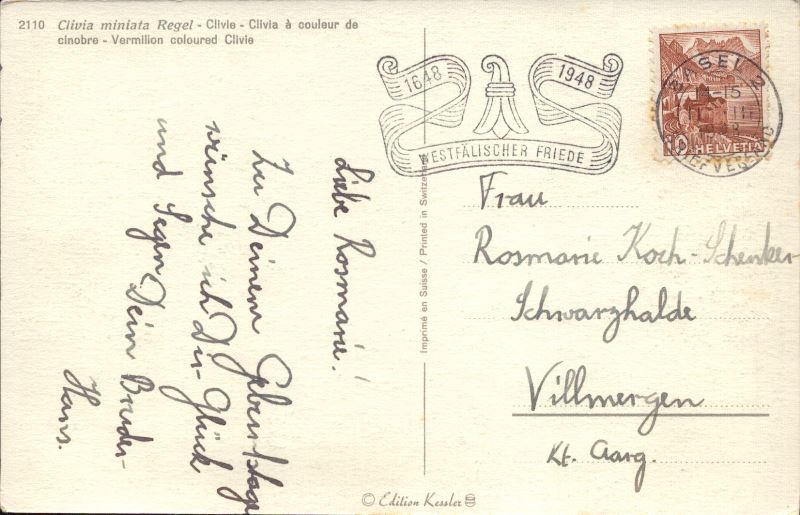 2110 Clivia miniata Regel - Clivie - Clivia à couleur de
cinobre - Vermilion coloured Clivie
Liebe Rosmarie!
Zu Deinem Geburtstage
wünsche ich Dir Glück
und Segen Dein Bruder
Hans.
Imprimé en Suisse / Printed in Switzerland
© Edition Kessler
1648 1948
WESTFÄLISCHER FRIEDE
BASEL 2
HELVETIA
10
Frau
Rosmarie Koch-Schenker
Schwarzhalde
Villmergen
Kt. Aarg.